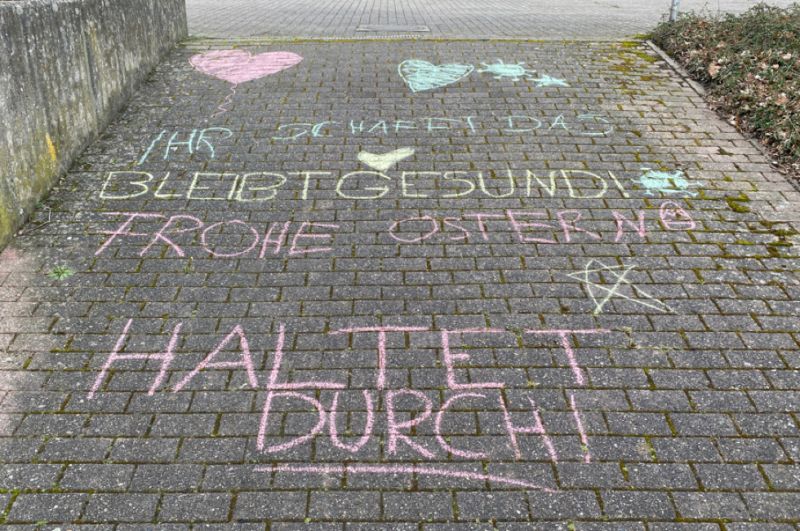 IHR SCHAFFT DAS
BLEIBT GESUND!
FROHE OSTERN
HALTET
DURCH!